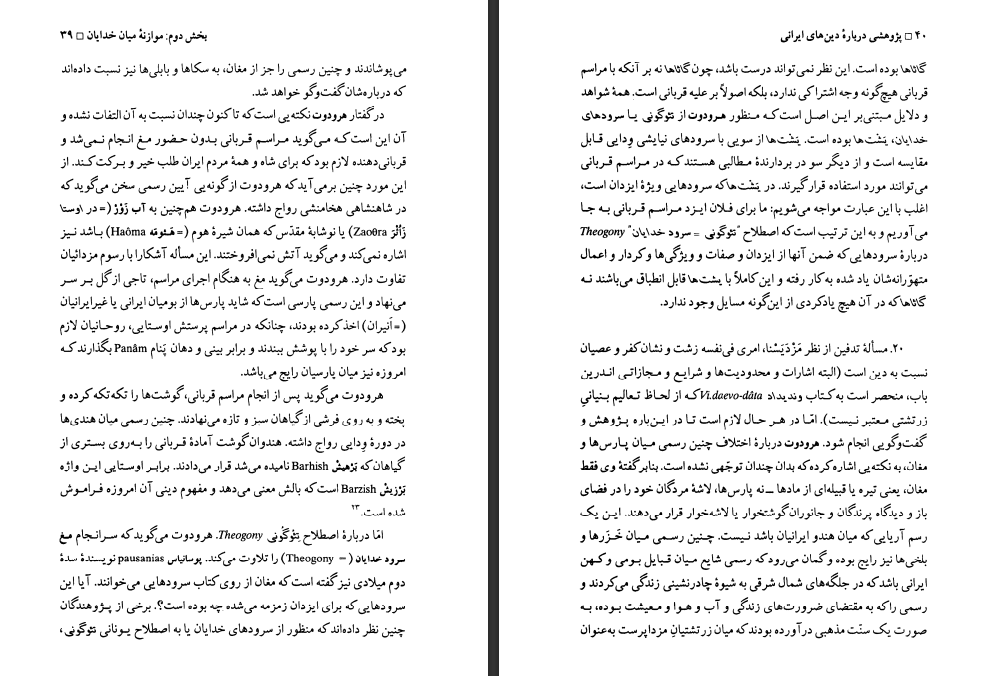 بخش دوم: موازنهٔ میان خدایان □ ۳۹
می‌پوشاندند و چنین رسمی را جز از مغان، به سکاها و بابلی‌ها نیز نسبت داده‌اند
که درباره‌شان گفت‌وگو خواهد شد.
در گفتار هرودوت نکته‌یی است که تاکنون چندان نسبت به آن التفات نشده و
آن این است کـه می‌گوید مراسـم قـربانی بـدون حضـور مـغ انجام نـمی‌شد و
قربانی‌دهنده لازم بود که برای شاه و همهٔ مردم ایران طلب خیر و بـرکت کـند. از
این مورد چنین برمی‌آید که هرودوت از گونه‌یی آیین رسمی سخن می‌گوید که
در شاهنشاهی هخامنشی رواج داشته. هرودوت هم‌چنین به آب زَوْرْ (= در اوستا
زَاُثْرَ Zaoθra) یا نوشابهٔ مقدّس که همان شیرهٔ هوم (= هَـئومَه Haôma) باشد نـیز
اشاره نمی‌کند و می‌گوید آتش نمی‌افروختند. این مسأله آشکارا با رسوم مزدائیان
تفاوت دارد. هرودوت می‌گوید مغ به هنگام اجرای مراسم، تاجی از گل بـر سـر
می‌نهاد و این رسمی پارسی است که شاید پارس‌ها از بومیان ایرانی یا غیرایرانیان
(= اَنیران) اخذ کرده بودند، چنانکه در مراسم پرستش اوستـایی، روحـانیان لازم
بود که سر خود را با پوشش ببندند و برابر بینی و دهان پَنام Panâm بگذارند کـه
امروزه نیز میان پارسیان رایج می‌باشد.
هرودوت می‌گوید پس از انجام مراسم قربانی، گوشت‌ها را تکه‌تکه کرده و
پخته و به روی فرشی از گیاهان سبز و تازه می‌نهادند. چنین رسمی میان هندی‌ها
در دورهٔ وِدایی رواج داشته. هندوان گوشت آمادهٔ قـربانی را بـه‌روی بستـری از
گیاهان که بَرْهیشْ Barhish نامیده می‌شد قرار می‌دادند. بـرابـر اوستـایی ایـن واژه
بَرْزِیشْ Barzish است که بالش معنی می‌دهد و مفهوم دینی آن امروزه فرامـوش
شده است.۲۳
امّا دربارهٔ اصطلاح تئوگُونی Theogony. هرودوت می‌گوید که سـرانجام مـغ
سرود خدایان (= Theogony) را تلاوت می‌کند. پوسانیاس pausanias نویسندهٔ سدهٔ
دوم میلادی نیز گفته است که مغان از روی کتاب سرودهایی می‌خوانند. آیا این
سرودهایی که برای ایزدان زمزمه می‌شده چه بوده است؟. برخی از پـژوهندگان
چنین نظر داده‌اند که منظور از سرودهای خدایان یا به اصطلاح یـونانی تئوگونی،
۴۰ □ پژوهشی دربارهٔ دین‌های ایرانی
گاثاها بوده است. این نظر نمی‌تواند درست باشد، چون گاثاها نه بر آنکه با مراسم
قربانی هیچ‌گونه وجه اشتراکی ندارد، بلکه اصولاً بر علیه قربانی است. همهٔ شواهد
و دلایل مبتنی‌بر این اصـل است کـه مـنظور هـرودوت از تئوگونی یـا سرودهای
خدایان، یشت‌ها بوده است. یَشْت‌ها از سویی با سرودهای نیایشی وِدایی قـابل
مقایسه است و از دیگر سو در بردارندهٔ مطالبی هستند کـه در مـراسـم قـربانی
می‌توانند مورد استفاده قرار گیرند. در یَشْت‌ها که سرودهایی ویژهٔ ایزدان است،
اغلب با این عبارت مواجه می‌شویم: ما برای فـلان ایـزد مـراسـم قـربانی بـه جـا
می‌آوریم و به این ترتیب است که اصطلاح "تئوگونی = سرود خدایان" Theogony
دربارهٔ سرودهایی که ضمن آنها از ایزدان و صفات و ویژگی‌ها و کردار و اعمال
متهوّرانه‌شان یاد شده به کار رفته و این کاملاً با یشت‌ها قابل انطباق می‌باشند نـه
گاثاها که در آن هیچ یادکردی از این‌گونه مسایل وجود ندارد.
۲۰. مسألهٔ تدفین از نظر مَزْدَیَسْنا، امری فی‌نفسه زشت و نشان کفر و عصیان
نسبت به دین است (البته اشارات و محدودیت‌ها و شرایع و مـجازاتـی انـدرین
باب، منحصر است به کتاب وندیداد Vi.daevo-dâta کـه از لحـاظ تـعالیم بـنیانیِ
زرتشتی معتبر نیست). امّـا در هـر حـال لازم است تـا در ایـن‌باره پـژوهش و
گفت‌وگویی انجام شود. هرودوت دربارهٔ اختلاف چنین رسمی مـیان پـارس‌ها و
مغان، به نکته‌یی اشاره کرده که بدان چندان توجّهی نشده است. بنابر گفتهٔ وی فقط
مغان، یعنی تیره یا قبیله‌ای از مادها ــ نه پارس‌ها، لاشهٔ مردگان خود را در فضای
باز و دیدگاه پرندگان و جانوران گوشتخوار یا لاشه‌خوار قرار می‌دهند. ایـن یک
رسم آریایی که میان هندو ایرانیان باشد نیست. چـنین رسمـی مـیان خَـزَرها و
بلخی‌ها نیز رایج بوده و گمان می‌رود که رسمی شایع میان قـبایل بـومی و کـهن
ایرانی باشد که در جلگه‌های شمال شرقی به شیوهٔ چادرنشینی زندگی می‌کردند و
رسمی را که به مقتضای ضرورت‌های زندگی و آب و هـوا و مـعیشت بـوده، بـه
صورت یک سنّت مذهبی درآورده بودند که میان زرتشتیانِ مزداپرست به‌عنوان